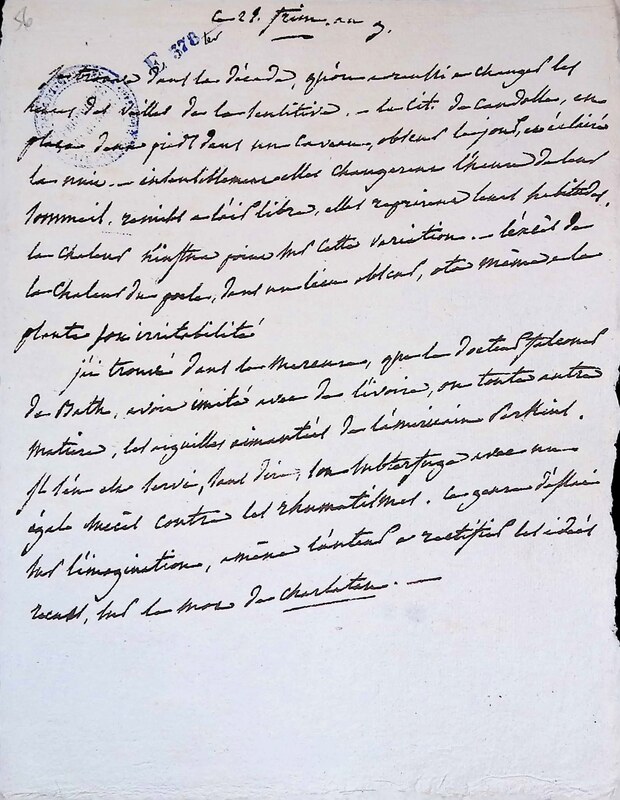 56
ce 29. frim. an 9.
E 378 ter
je trouve dans la décade, qu'on a reussi a changer les
heures des veilles de la sensitive. – le cit. de candolle, en
plaça deux pieds dans un caveau, obscur le jour, et éclairé
la nuit. – insensiblement elles changerent l'heure de leur
sommeil, remises a l'air libre, elles reprirent leurs habitudes.
la chaleur n'influe point sur cette variation. – l'excès de
la chaleur du poele, dans un lieu obscur, ota même a la
plante son irritabilité
j'ai trouvé dans le mercure, que le docteur falconer
de Bath, avoit imité avec de l'ivoire, ou toute autre
matiere, les aiguilles aimantées de l'américain Perkins.
il s'en est servi, sans dire, son subterfuge avec un
égale succès contre les rhumatismes. ce genre d'effet
sur l'imagination, amène l'auteur a rectifier les idées
recues, sur le mot de charlatan. —